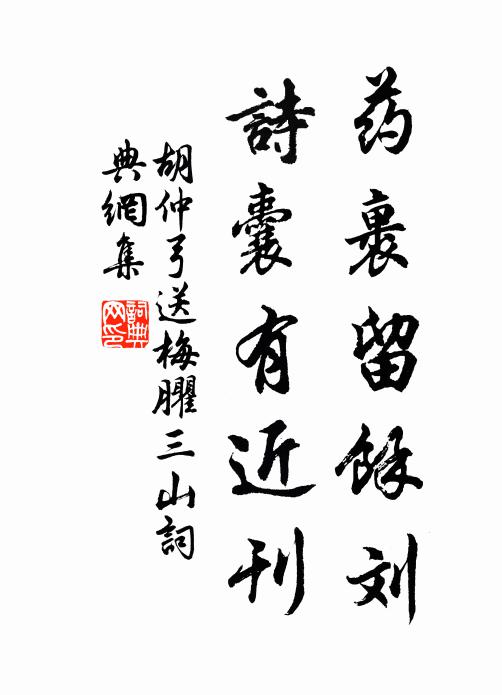 药裹留餘刘
詩囊有近刊
胡仲弓送梅臞三山詞
典網集
詞典網印